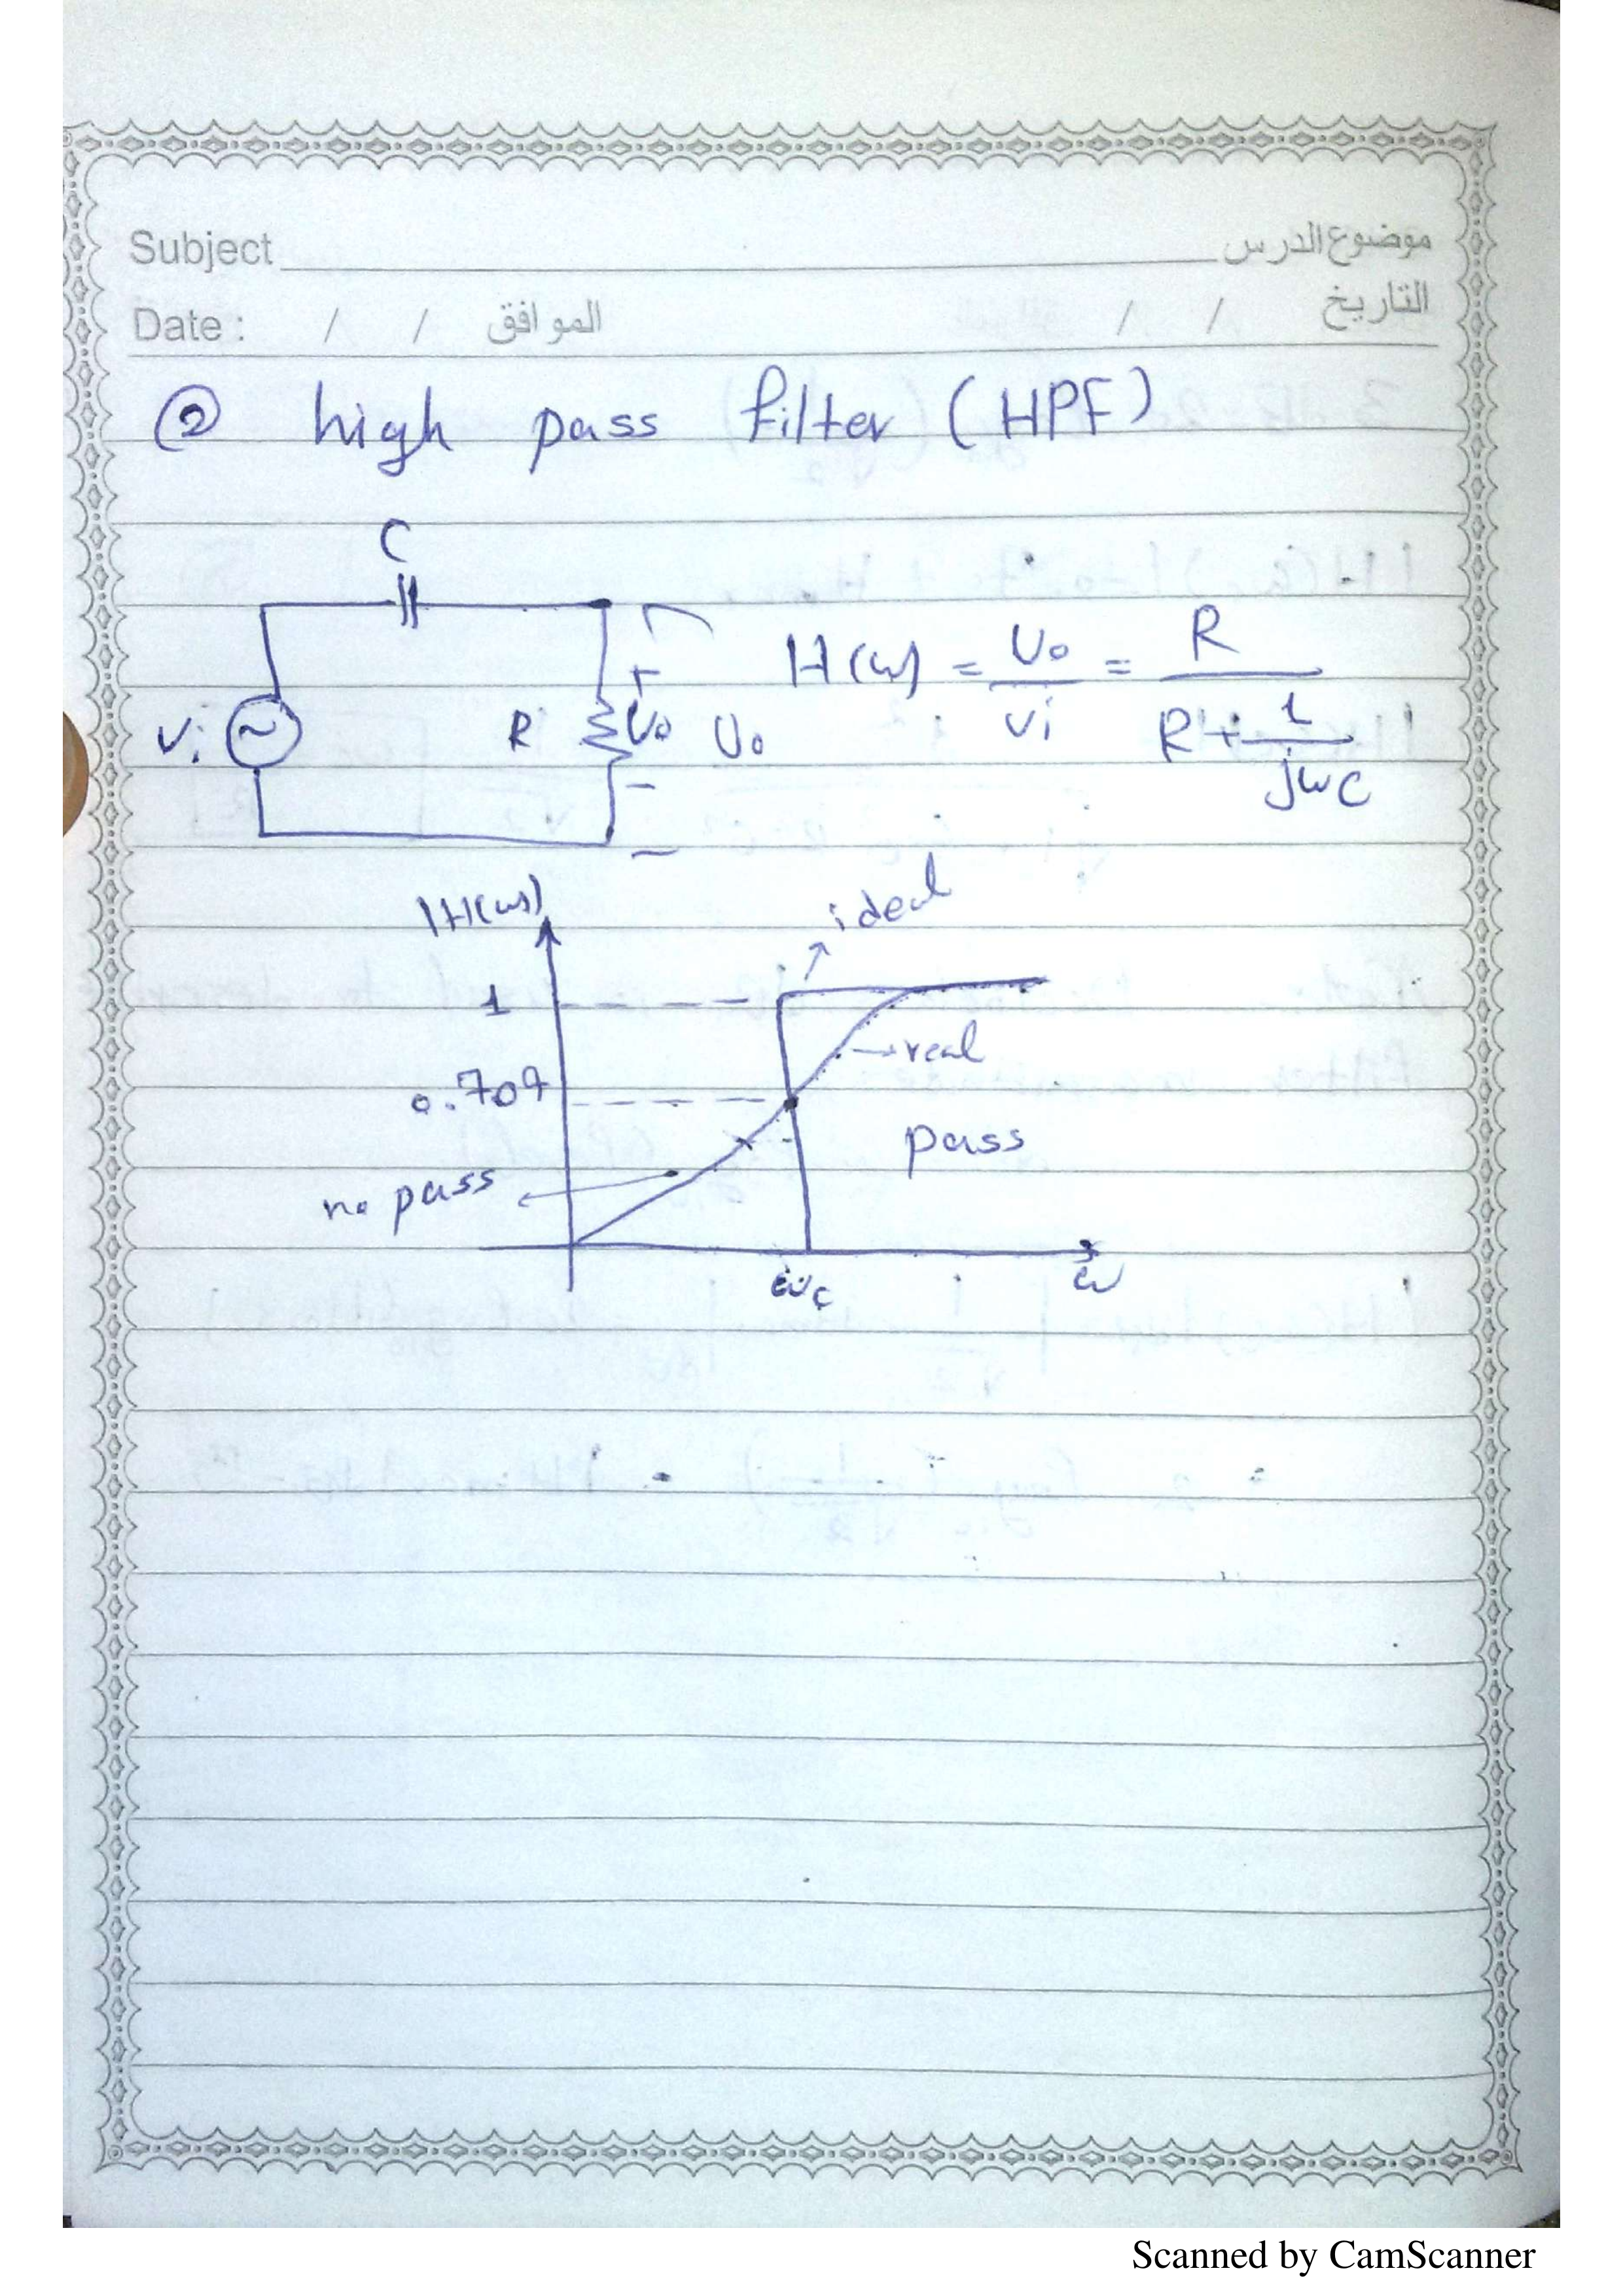 Subject موضوع الدرس
Date : / / الموافق / / التاريخ
② high pass filter (HPF)
C
H(ω) = Vo/Vi = R/(R + 1/jωC)
Vi R + Vo - Vo -
|H(ω)|
ideal
1
real
0.707
pass
no pass
ωc ω
Scanned by CamScanner